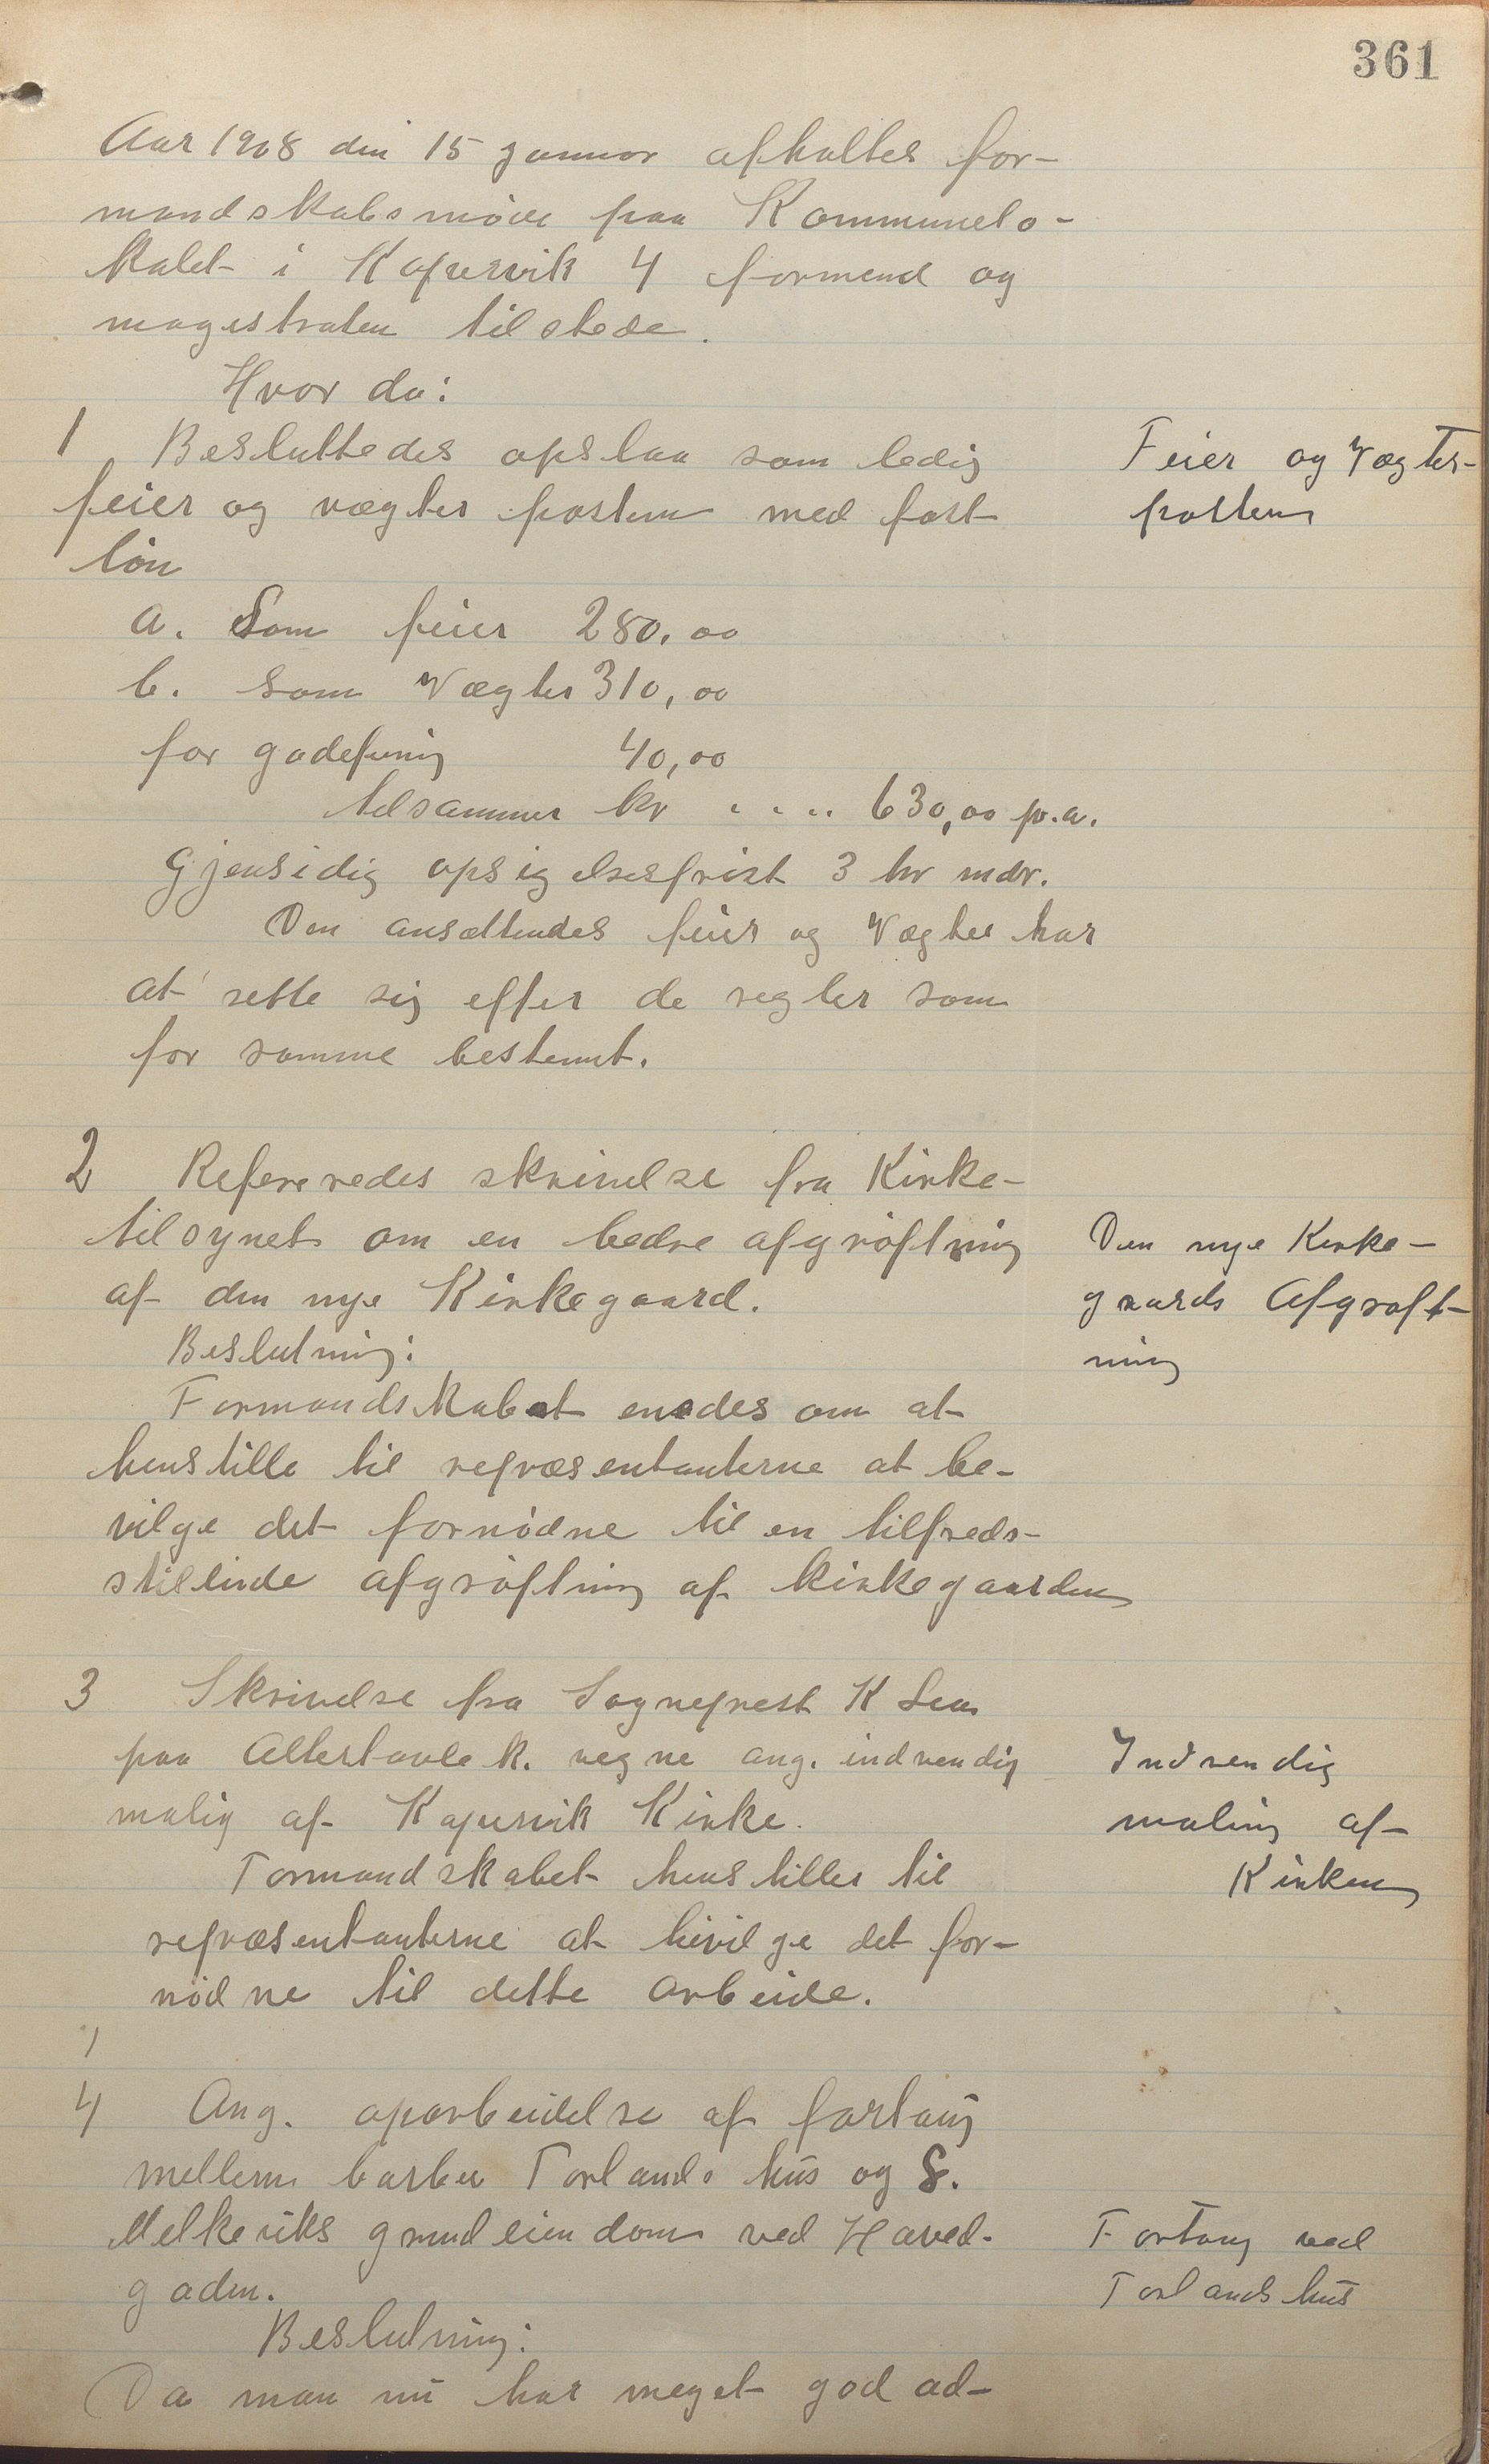 361
Aar 1908 den 15 januar afholtes for-
mandskabsmøde paa Kommunelo-
kalet i Kopervik 4 formend og
magistraten tilstede.
Hvor da:
1 Besluttedes opslaa som ledig
feier og vægter posten med fast
løn
Feier og Vægter-
posten
a. Som feier 280,00
b. som Vægter 310,00
for gadefeining 40,00
tilsammen kr .... 630,00 p.a.
Gjensidig opsigelsesfrist 3 hr mdr.
Den ansættendes feier og Vægter har
at rette sig efter de regler som
for samme bestemt.
2 Refereredes skrivelse fra Kirke-
tilsynet om en bedre afgrøftning
af den nye Kirkegaard.
Den nye Kirke-
gaards Afgrøft-
ning
Beslutning:
Formandskabet enedes om at
henstille til repræsentanterne at be-
vilge det fornødne til en tilfreds-
stillende afgrøftning af kirkegaarden
3 Skrivelse fra Sogneprest K Lea
paa Altertavlek. vegne ang. indvendig
malig af Kopervik Kirke.
Indvendig
maling af
Kirken
Formandskabet henstiller til
repræsentanterne at bevilge det for-
nødne til dette arbeide.
4 Ang. oparbeidelse af fortaug
mellem barber Torlands hus og S.
Melkeviks grundeiendom ved Hoved-
gaden.
Fortaug ved
Torlands hus
Beslutning:
Da man nu har meget god ad-